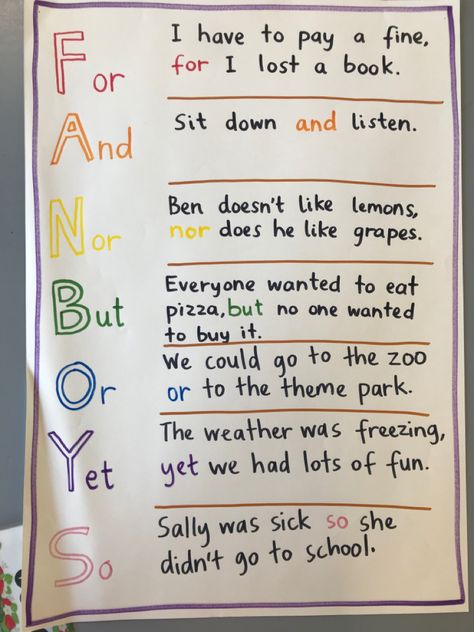 For
I have to pay a fine,
for I lost a book.
And
Sit down and listen.
Nor
Ben doesn't like lemons,
nor does he like grapes.
But
Everyone wanted to eat
pizza, but no one wanted
to buy it.
Or
We could go to the zoo
or to the theme park.
Yet
The weather was freezing,
yet we had lots of fun.
So
Sally was sick so she
didn't go to school.